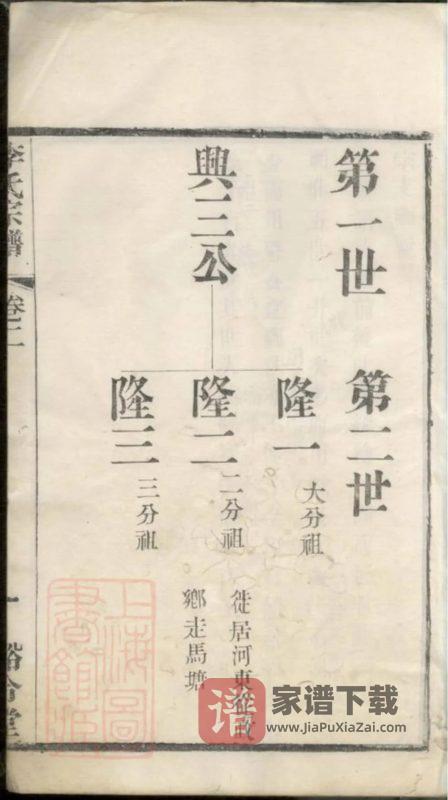 第一世
第二世
興三公
隆一
大分祖
隆二
二分祖
徙居河東從政
鄉走馬塘
隆三
三分祖
李氏宗譜
卷二
一
上海圖
書館藏
谱
家谱下载
www.JiaPuXiaZai.com